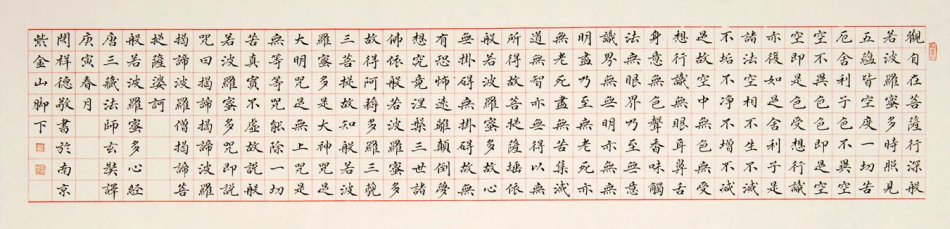 觀自在菩薩行深般
若波羅蜜多時照見
五蘊皆空度一切苦
厄舍利子色不異空
空不異色色即是空
空即是色受想行識
亦復如是舍利子是
諸法空相不生不滅
不垢不淨不增不減
是故空中無色無受
想行識無眼耳鼻舌
身意無色聲香味觸
法無眼界乃至無意
識界無無明亦無無
明盡乃至無老死亦
無老死盡無苦集滅
道無智亦無得以無
所得故菩提薩埵依
般若波羅蜜多故心
無掛礙無掛礙故無
有恐怖遠離顛倒夢
想究竟涅槃三世諸
佛依般若波羅蜜多
故得阿耨多羅三藐
三菩提故知般若波
羅蜜多是大神咒是
大明咒是無上咒是
無等等咒能除一切
苦真實不虛故說般
若波羅蜜多咒即說
咒曰揭諦揭諦波羅
揭諦波羅僧揭諦菩
提薩婆訶
般若波羅蜜多心經
唐三藏法師玄奘譯
庚寅春月
閔祥德敬書於南京
紫金山脚下